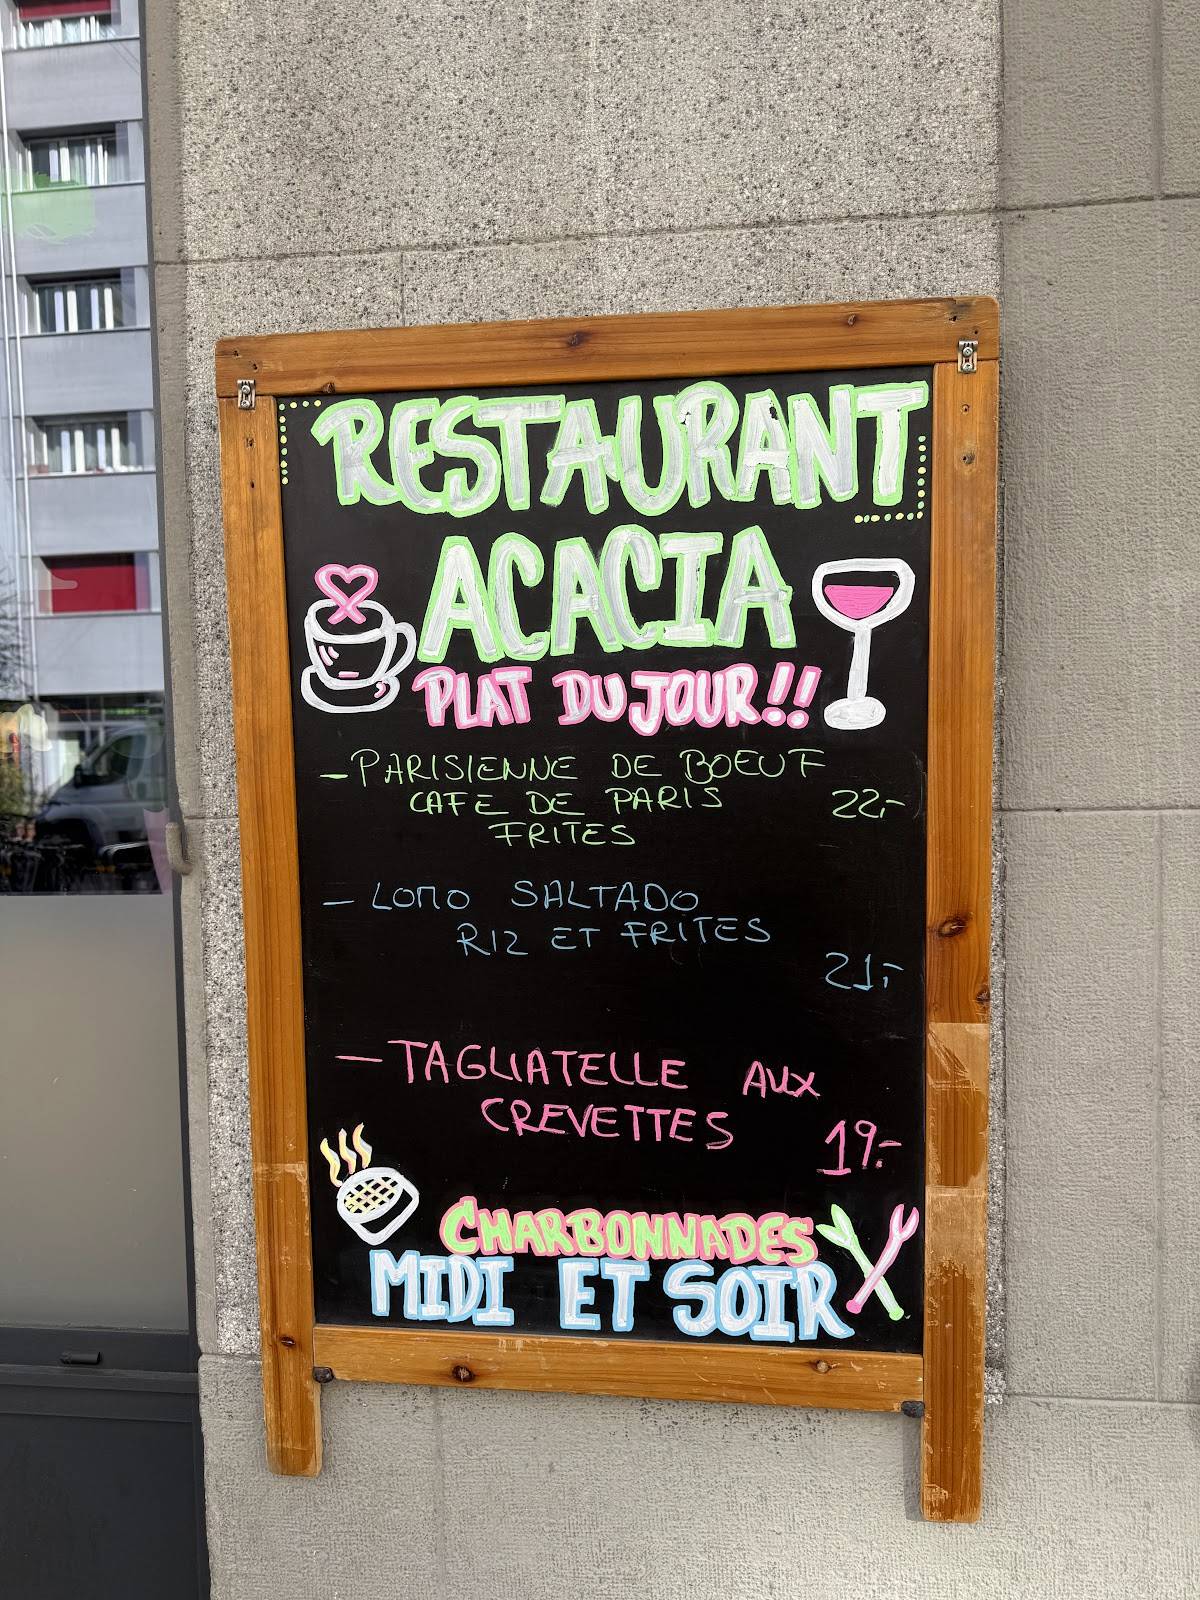 RESTAURANT
ACACIA
PLAT DU JOUR!!
- PARISIENNE DE BOEUF
CAFE DE PARIS 22.-
FRITES
- LOMO SALTADO
RIZ ET FRITES
21.-
- TAGLIATELLE AUX
CREVETTES
19.-
CHARBONNADES
MIDI ET SOIR